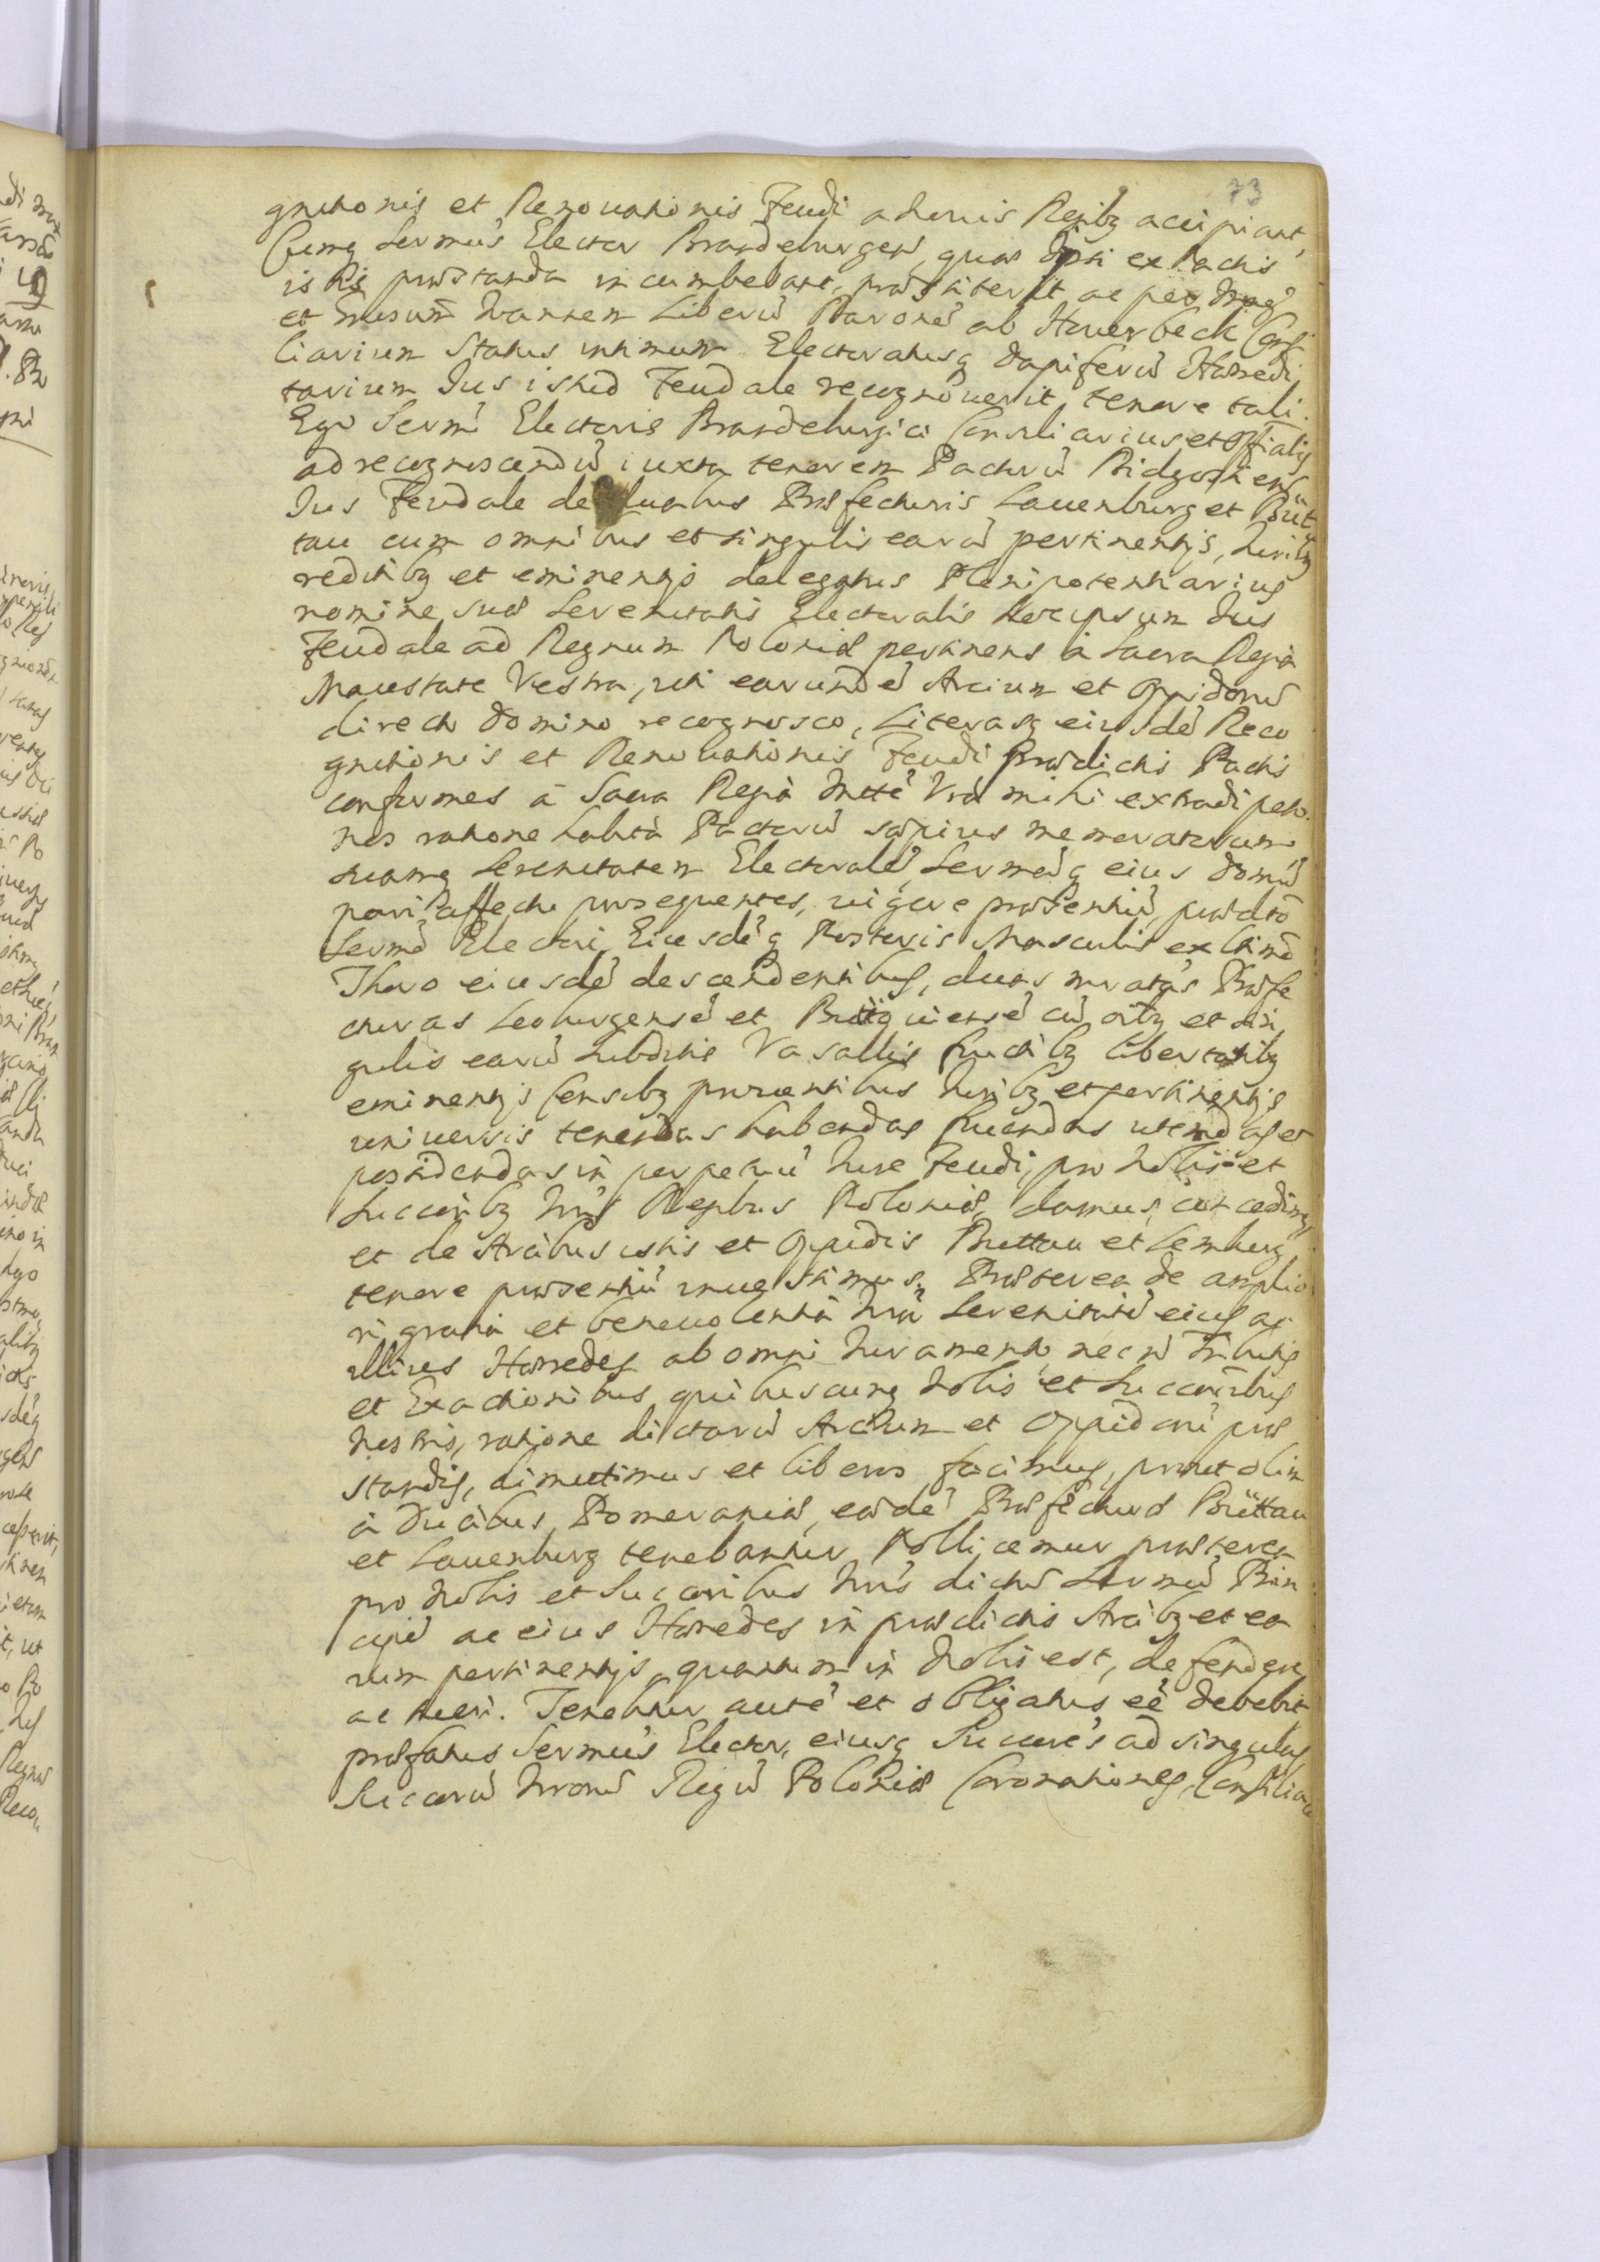 73
gnitionis et Renouationis Feudi a nouis Regibz accipiant,
Cumq Sermus Elector Brandeburgen quae Ipsi ex Pactis
istis praestanda incumbebant, praestiterit ac per Magcu
et Gnosum Ioannem Liberu Barone ab Houerbeck Consi
liarium Status intimum Electoratusq Dapiferu Haeredi
tarium Ius istud Feudale recognouerit tenore tali.
Ego Sermi Electoris Brandeburgici Consiliarius et Offialis
ad recognoscendu iuxta tenorem Pactoru Bidgostien
Ius Feudale de duabus Praefecturis Lauenburg et Büt
tau cum omnibus et singulis earu pertinentijs, Iuribz
reditibz et eminentijs delegatus Plenipotentiarius
nomine suae Serenitatis Electoralis hoc ipsum Ius
Feudale ad Regnum Poloniae pertinens à Sacra Regia
Maiestate Vestra, uti earunde Arcium et Oppidoru
directo Domino recognosco, Literasq eiusde Reco
gnitionis et Renouationis Feudi Praedictis Pactis
conformes à Sacra Regia Mtte Vra mihi extradi peto.
Nos ratione habita Pactoru saepius memoratorum
suamq Serenitatem Electorale, Sermaq eius Domu
pari affectu prosequentes, uigore praesentiu, praedto
Sermo Electori Eiusdeq Posteris Masculis ex
Thoro eiusde descendentibus, duas  Praefe
cturas Leoburgense et  cu oibz et sin
gulis earu subditis Vasallis fructibz libertatibz
eminentijs Censibz prouentibus Iuribz et pertinentijs
uniuersis tenendas habendas fruendas utendas et
possidendas in perpetuu Iure Feudi, pro Nobis et
Succoribz Nris Regibus Poloniae, damus, concedimus
et de Arcibus istis et Oppidis Buttau et Lemburg
tenore praesentiu inuestimus, Praeterea de amplio
ri gratia et beneuolentia Nra Serenitate eius ac
illius Haeredes ab omni Iuramento necno Tributis
et Exactionibus quibuscunq Nobis et Succoribus
Nostris, ratione dictaru Arcium et Oppidoru prae
standis, dimittimus et liberos facimus, prout olim
à Ducibus Pomeraniae, eaede Praefecturae Büttau
et Lauenburg tenebantur Pollicemur praeterea
pro Nobis et Succoribus Nris dictu Sermu Prin
cipe ac eius Haeredes in praedictis Arcibz et ea
rum pertinentijs, quantum in Nobis est, defendere
ac tueri. Tenebitur aute et obligatus ee debebit
praefatus Sermus Elector, eiusq Succores ad singulas
Succoru Nroru Regu Poloniae Coronationes, Consiliariu